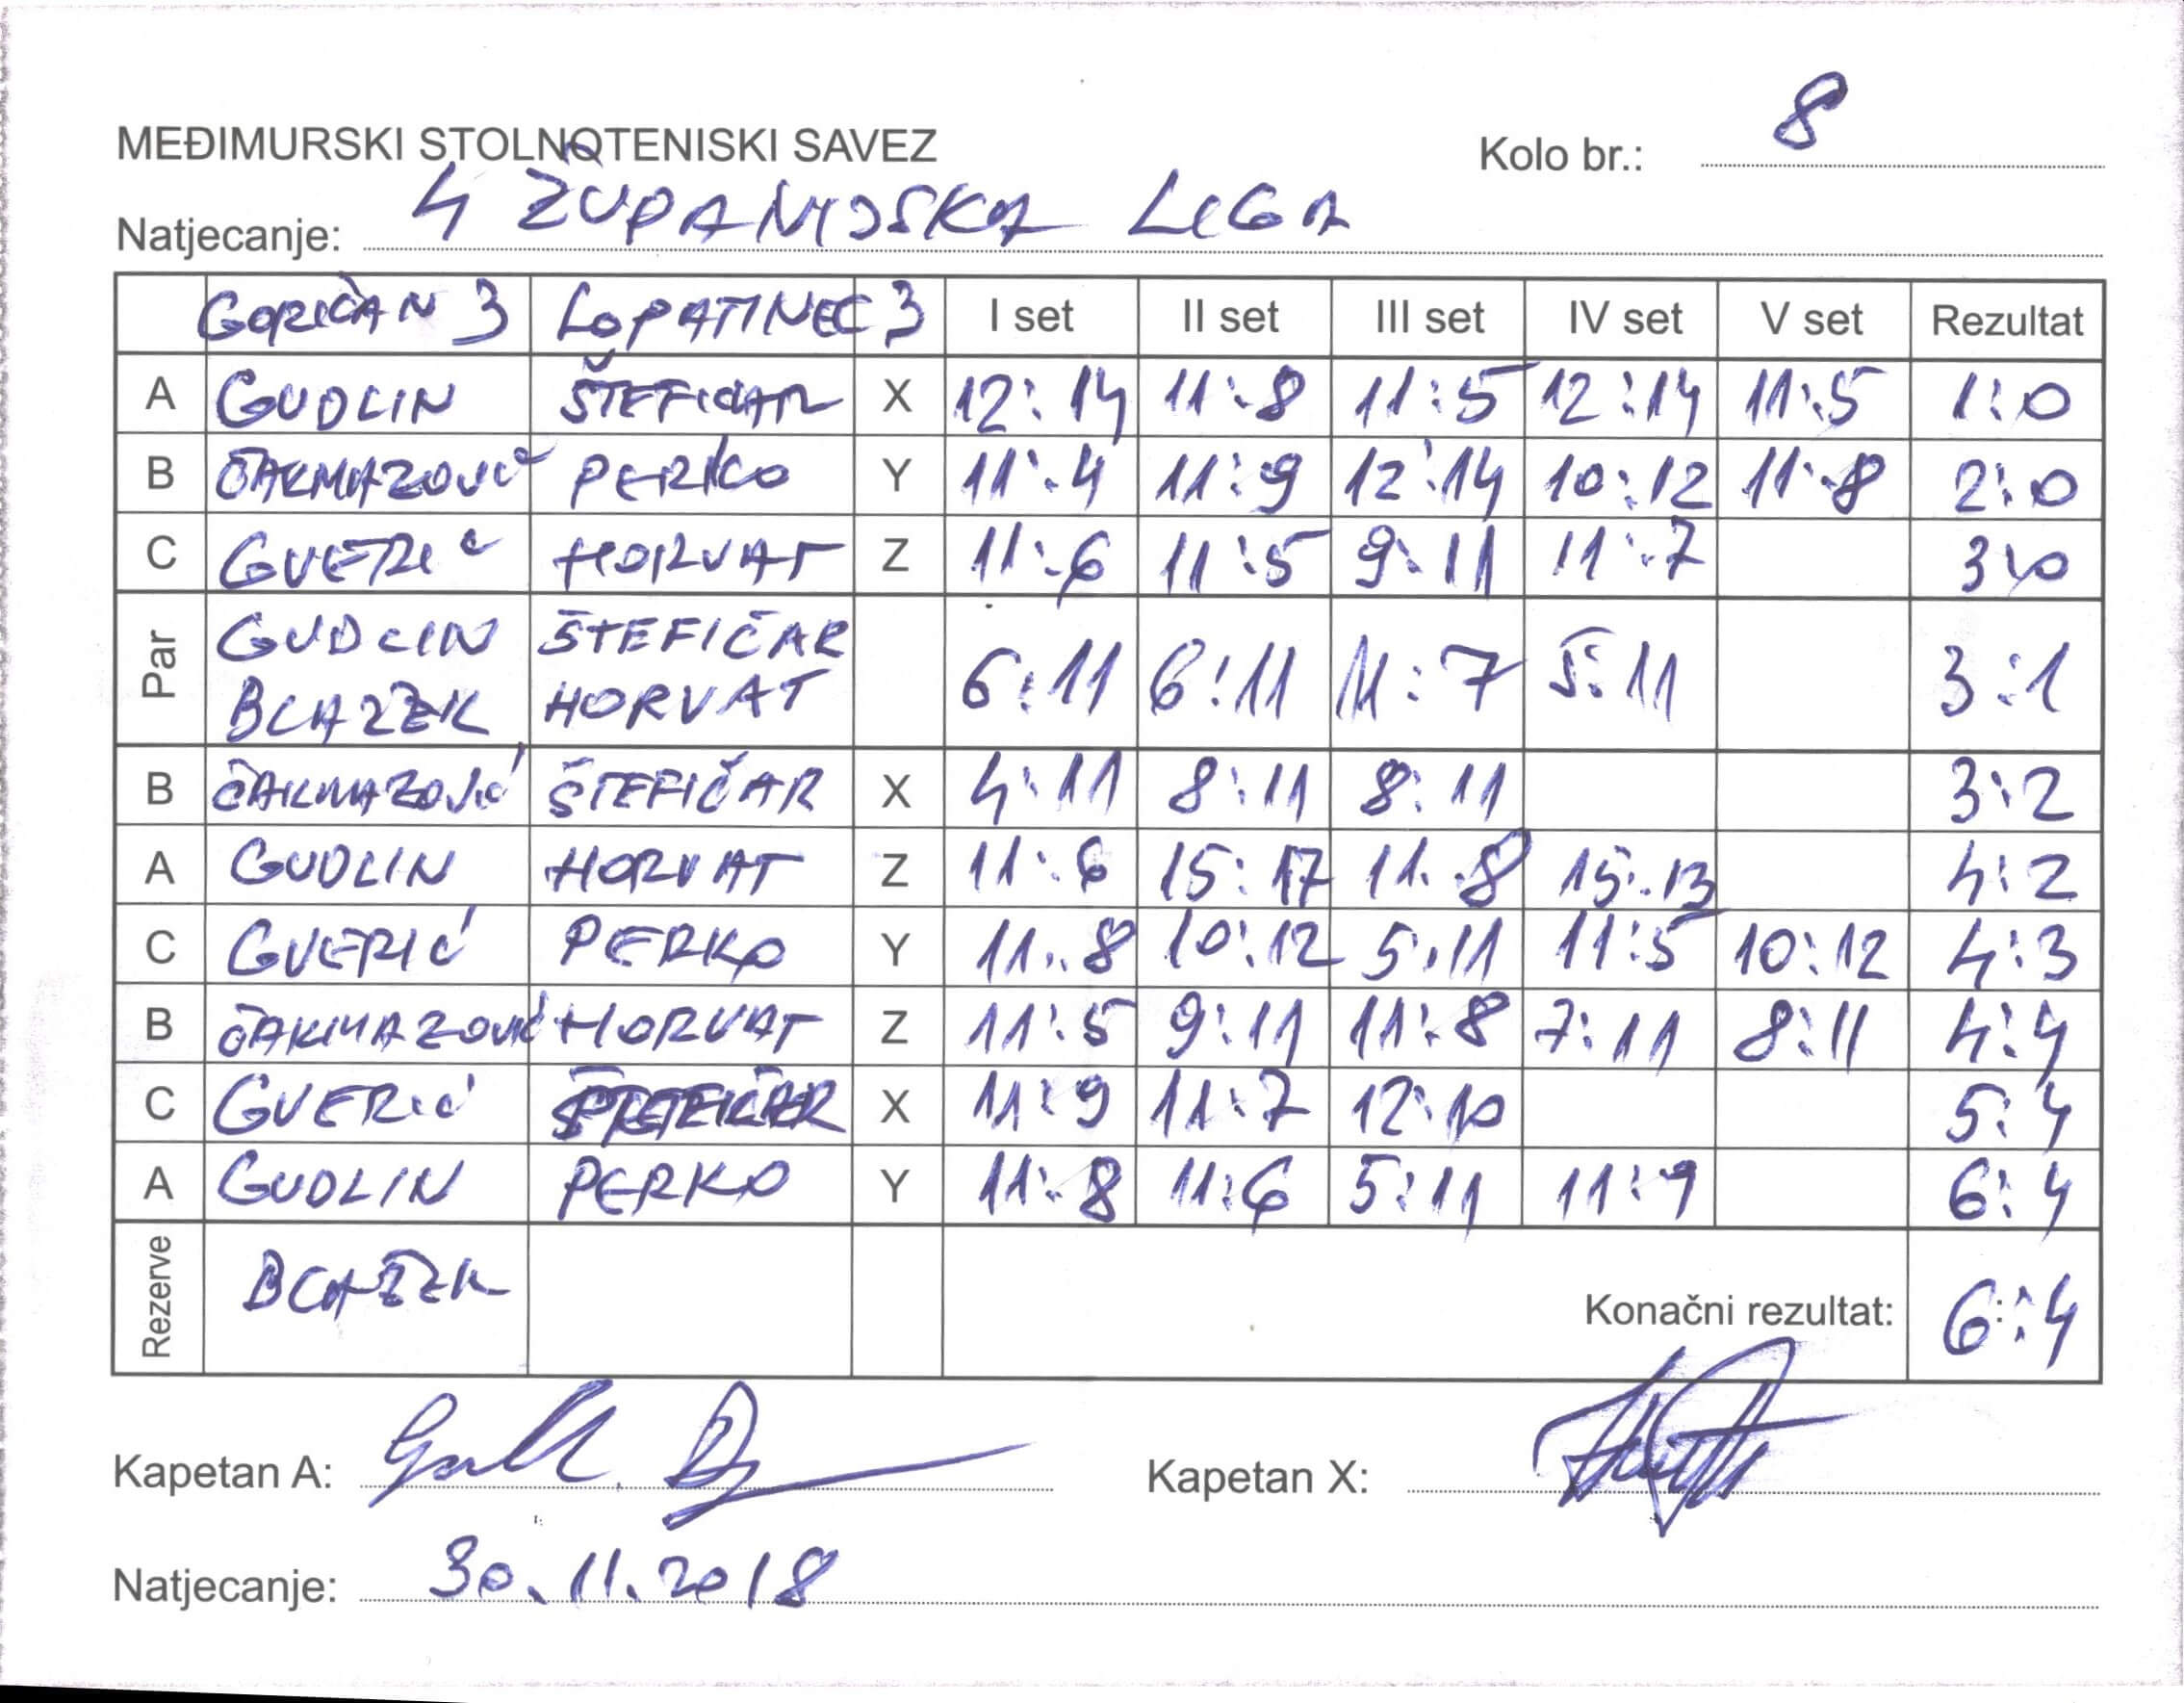 MEĐIMURSKI STOLNOTENISKI SAVEZ
Kolo br.: 8
Natjecanje: 4 ŽUPANIJSKA LIGA
GORIČAN 3 LOPATINEC 3 I set II set III set IV set V set Rezultat
A GUDLIN ŠTEFIČAR X 12:14 11:8 11:5 12:14 11:5 1:0
B ČAKMAZOVIĆ PERKO Y 11:4 11:9 12:14 10:12 11:8 2:0
C GVERIĆ HORVAT Z 11:6 11:5 9:11 11:7 3:0
Par GUDLIN ŠTEFIČAR 6:11 6:11 11:7 5:11 3:1
BLAŽEK HORVAT
B ČAKMAZOVIĆ ŠTEFIČAR X 4:11 8:11 8:11 3:2
A GUDLIN HORVAT Z 11:6 15:17 11:8 15:13 4:2
C GVERIĆ PERKO Y 11:8 10:12 5:11 11:5 10:12 4:3
B ČAKMAZOVIĆ HORVAT Z 11:5 9:11 11:8 7:11 8:11 4:4
C GVERIĆ ŠTEFIČAR X 11:9 11:7 12:10 5:4
A GUDLIN PERKO Y 11:8 11:6 5:11 11:9 6:4
Rezerve BLAŽEK Konačni rezultat: 6:4
Kapetan A: Kapetan X:
Natjecanje: 30.11.2018